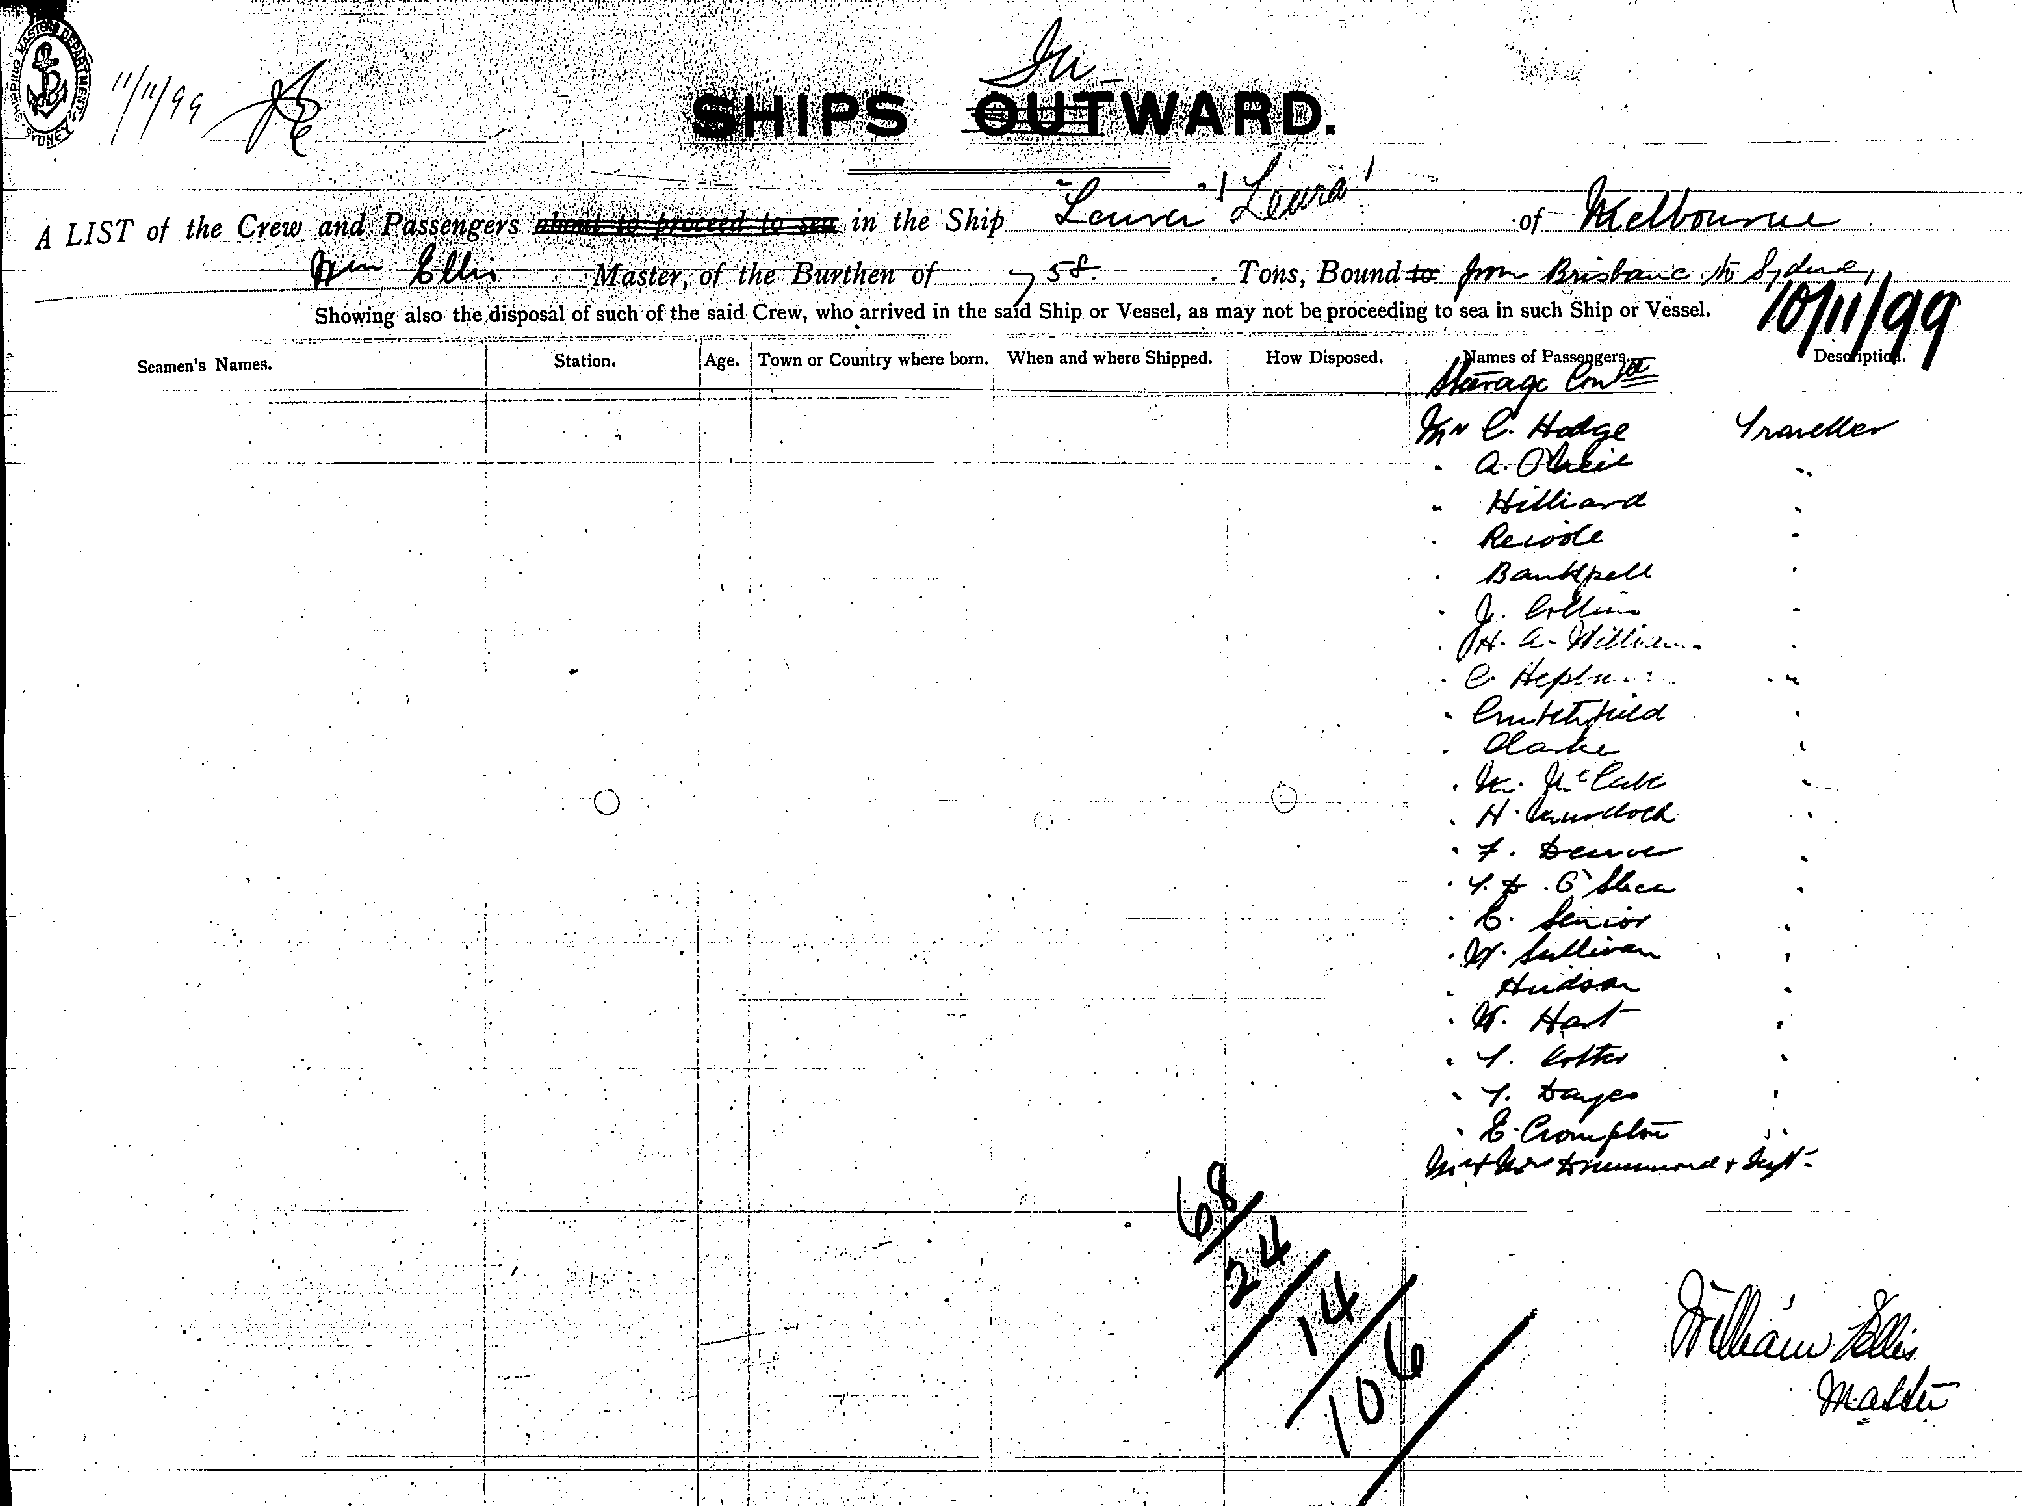 SHIPPING MASTER'S DEPARTMENT SYDNEY
11/11/99
In
SHIPS OUTWARD.
A LIST of the Crew and Passengers about to proceed to sea in the Ship "Leura" "Leura" of Melbourne
Wm Ellis Master, of the Burthen of 758. Tons, Bound to from Brisbane to Sydney
10/11/99
Showing also the disposal of such of the said Crew, who arrived in the said Ship or Vessel, as may not be proceeding to sea in such Ship or Vessel.
Seamen's Names. Station. Age. Town or Country where born. When and where Shipped. How Disposed. Names of Passengers. Description.
Steerage Contd
Mr C. Hodge Traveller
" A. O'Neil "
" Hilliard "
"
"
" J. Collins "
" H. A. Williams "
" C.
"
" Clarke "
" W. McCabe "
" H. Murdoch "
" F. Denver "
" O'Shea "
" E. Senior "
" W. Sullivan "
" Hudson "
" W. Hart "
" T. Cotter "
" T. Dayes "
" E. Crompton "
Mr & Mrs Drummond & Inft
68
24
14
106
William Ellis
Master